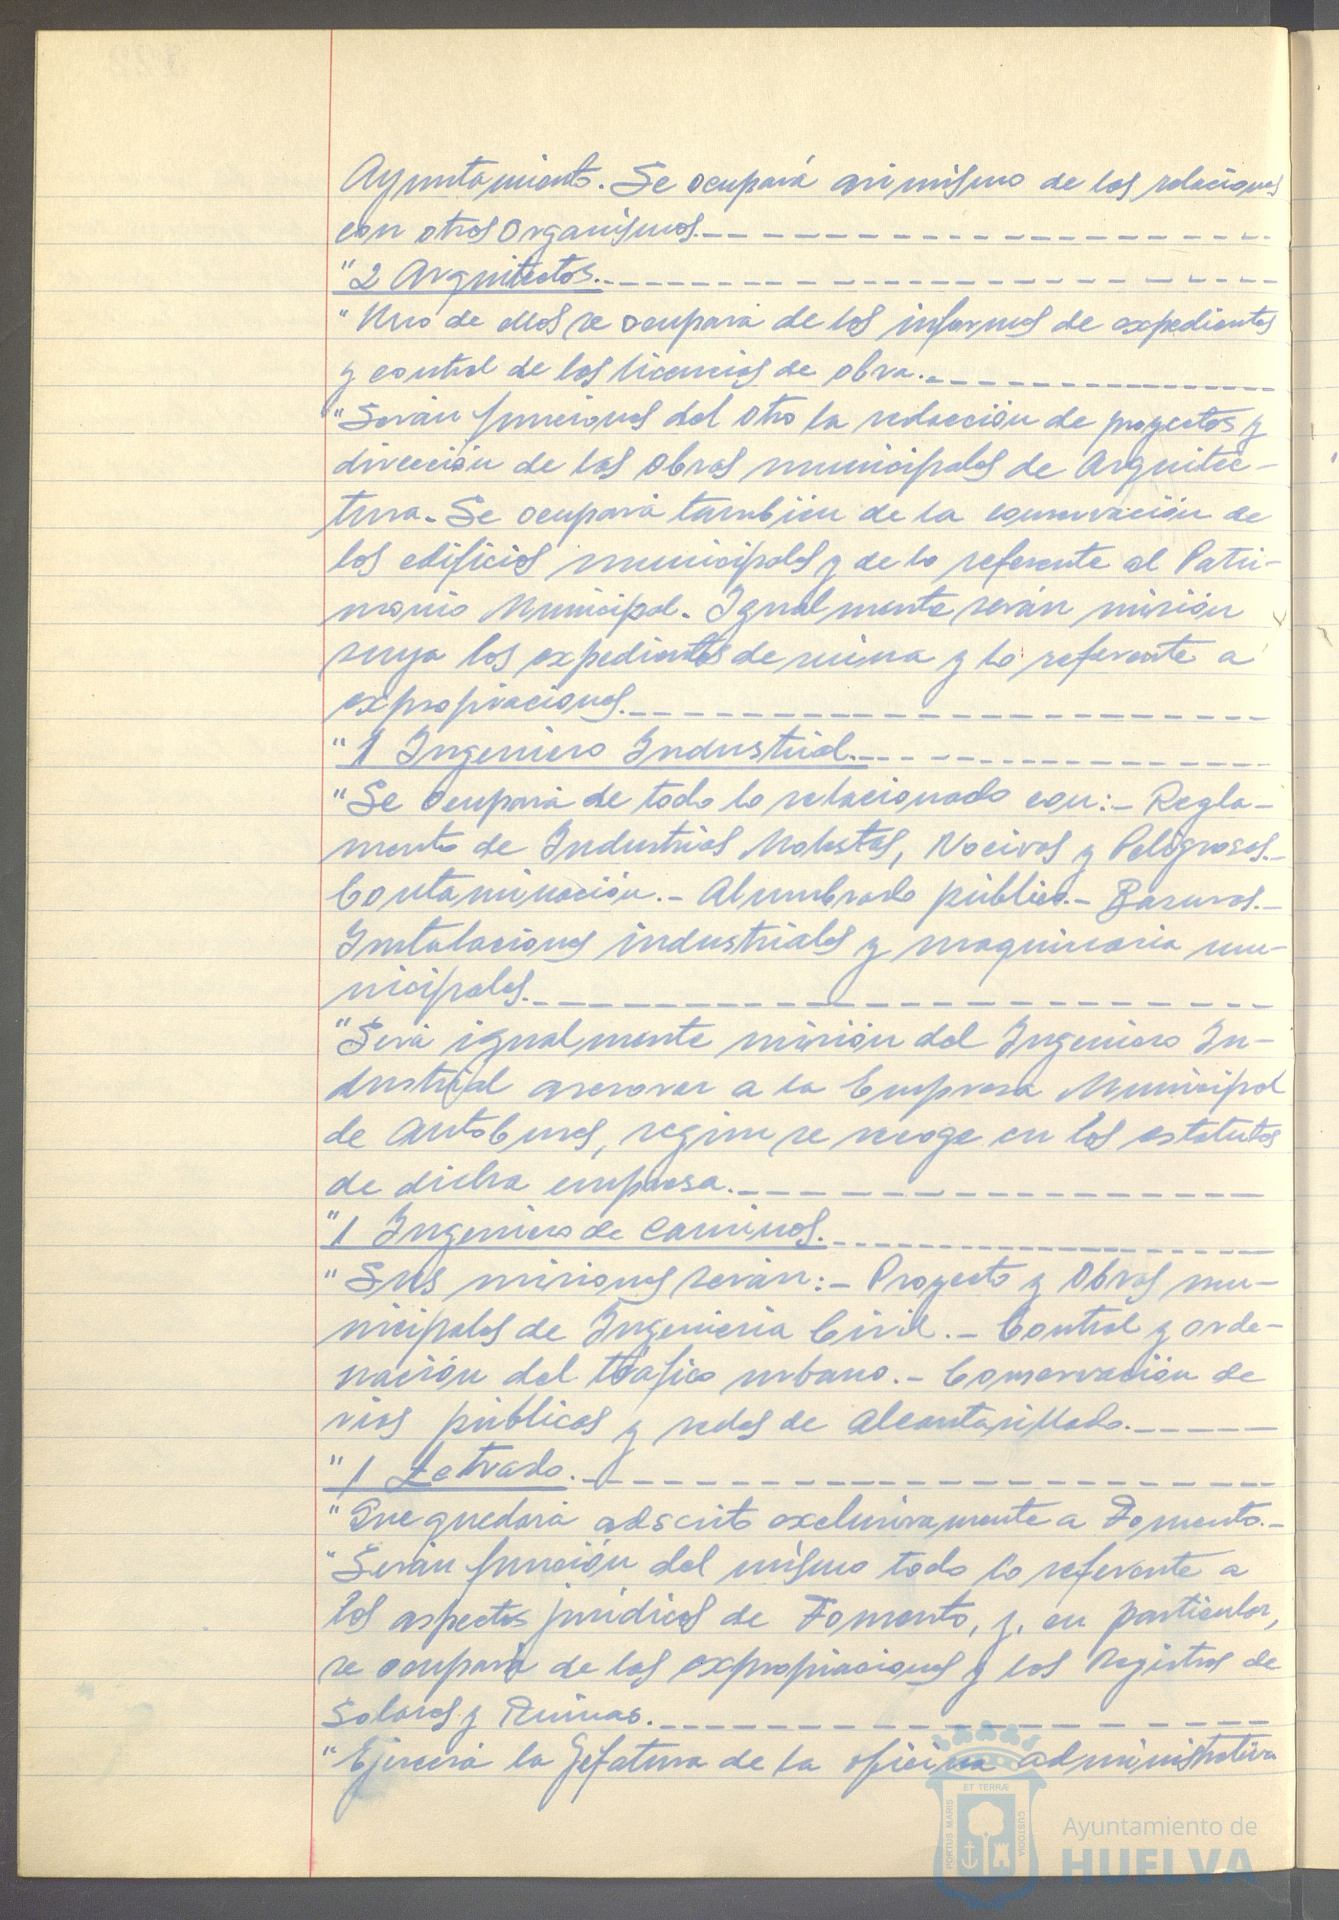 Ayuntamiento. Se ocupará asimismo de las relaciones
con otros Organismos.
"2 Arquitectos.
"Uno de ellos se ocupará de los informes de expedientes
y control de las licencias de obra.
"Serán funciones del otro la redacción de proyectos y
dirección de las obras municipales de Arquitec-
tura. Se ocupará también de la conservación de
los edificios municipales y de lo referente al Patri-
monio Municipal. Igualmente serán misión
suya los expedientes de ruina y lo referente a
expropiaciones.
"1 Ingeniero Industrial.
"Se ocupará de todo lo relacionado con:- Regla-
mento de Industrias Molestas, Nocivas y Peligrosas.-
Contaminación.- Alumbrado público.- Basuras.-
Instalaciones industriales y maquinaria mu-
nicipales.
"Será igualmente misión del Ingeniero In-
dustrial asesorar a la Empresa Municipal
de Autobuses, según se recoge en los estatutos
de dicha empresa.
"1 Ingeniero de Caminos.
"Sus misiones serán:- Proyecto y Obras mu-
nicipales de Ingeniería Civil.- Control y orde-
nación del tráfico urbano.- Conservación de
vías públicas y redes de alcantarillado.
"1 Letrado.
"Que quedará adscrito exclusivamente a Fomento.-
"Serán función del mismo todo lo referente a
los aspectos jurídicos de Fomento, y, en particular,
se ocupará de las expropiaciones y los Registros de
Solares y Ruinas.
"Ejercerá la Jefatura de la oficina administrativa
PORTUS MARIS
ET TERRÆ
CUSTODIA
Ayuntamiento de
HUELVA